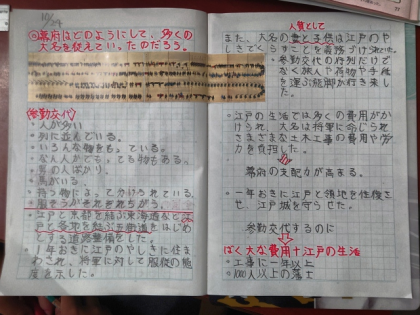 10/24
幕府はどのようにして、多くの
大名を従えていったのだろう。
参勤交代
・人が多い
・列に並んでいる。
・いろんな物をもっている。
・男の人ばかり。
・馬がいる。
・持つ物によって分けられている。
・江戸と京都を結ぶ東海道など
江戸と各地を結ぶ五街道をはじめ
とする道路整備をした。
・1年おきに江戸のやしきに住ま
わされ、将軍に対して服従の態
度を示した。
人質として
また、大名の妻と子供は江戸のや
しきでくらすことを義務づけられていた。
・参勤交代の行列だけで
なく旅人や荷物や手紙
を運ぶ飛脚が行き来し
た。
・江戸の生活では多くの費用がか
けられ、大名は将軍に命じられ
さまざまな土木工事の費用や労
力を負担した。
幕府の支配力が高まる。
・一年おきに江戸と領地を往復させ
、江戸城を守らせた。
参勤交代するのに
ばく大な費用+江戸の生活
・工事に一年以上
・1000人以上の落士